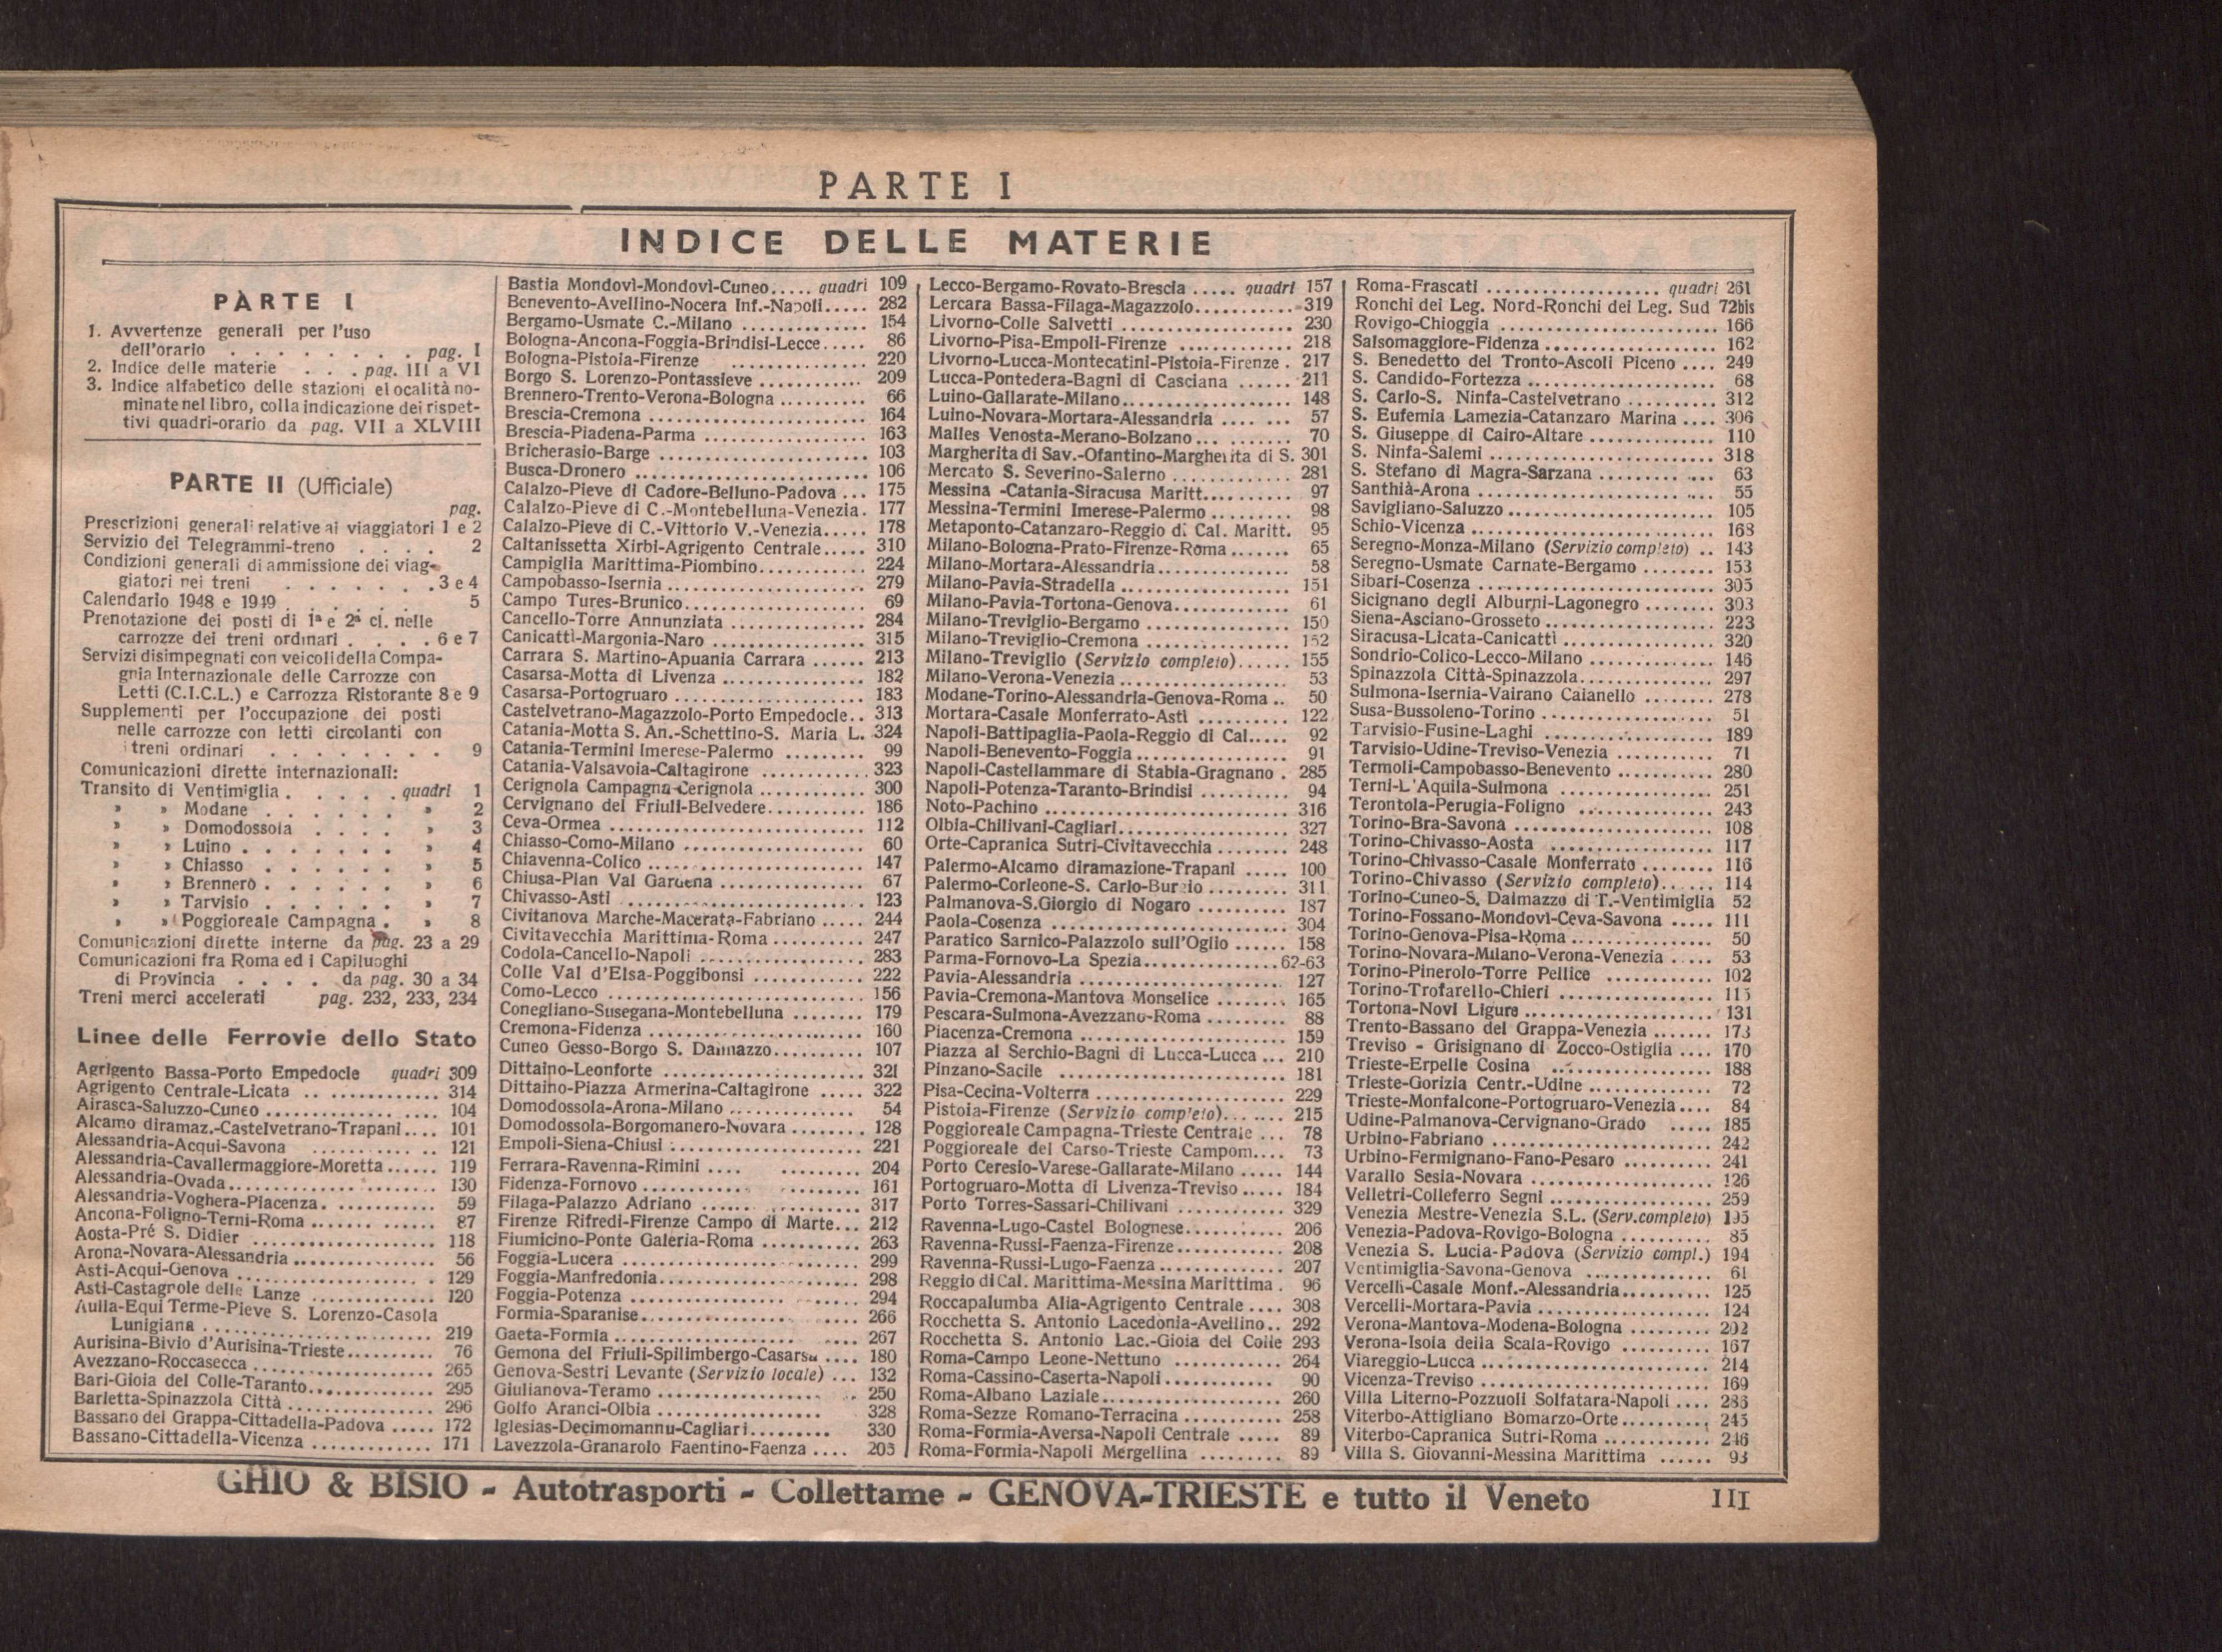 PARTE I
INDICE DELLE MATERIE
PARTE I
1. Avvertenze generali per l'uso
dell'orario . . . . . . . . pag. I
2. Indice delle materie . . . pag. III a VI
3. Indice alfabetico delle stazioni e località no-
minate nel libro, colla indicazione dei rispet-
tivi quadri-orario da pag. VII a XLVIII
PARTE II (Ufficiale)
pag.
Prescrizioni generali relative ai viaggiatori 1 e 2
Servizio dei Telegrammi-treno . . . . 2
Condizioni generali di ammissione dei viag-
giatori nei treni . . . . . . . 3 e 4
Calendario 1948 e 1949 . . . . . . 5
Prenotazione dei posti di 1ª e 2ª cl. nelle
carrozze dei treni ordinari . . . . 6 e 7
Servizi disimpegnati con veicoli della Compa-
gnia Internazionale delle Carrozze con
Letti (C.I.C.L.) e Carrozza Ristorante 8 e 9
Supplementi per l'occupazione dei posti
nelle carrozze con letti circolanti con
i treni ordinari . . . . . . . . 9
Comunicazioni dirette internazionali:
Transito di Ventimiglia . . . . . quadri 1
» » Modane . . . . . . . » 2
» » Domodossola . . . . » 3
» » Luino . . . . . . . » 4
» » Chiasso . . . . . . » 5
» » Brennero . . . . . . » 6
» » Tarvisio . . . . . . » 7
» » Poggioreale Campagna . » 8
Comunicazioni dirette interne da pag. 23 a 29
Comunicazioni fra Roma ed i Capiluoghi
di Provincia . . . . da pag. 30 a 34
Treni merci accelerati pag. 232, 233, 234
Linee delle Ferrovie dello Stato
Agrigento Bassa-Porto Empedocle quadri 309
Agrigento Centrale-Licata .. ............ 314
Airasca-Saluzzo-Cuneo .................. 104
Alcamo diramaz.-Castelvetrano-Trapani .... 101
Alessandria-Acqui-Savona ............ 121
Alessandria-Cavallermaggiore-Moretta ...... 119
Alessandria-Ovada ..................... 130
Alessandria-Voghera-Piacenza ............ 59
Ancona-Foligno-Terni-Roma ............ 87
Aosta-Pré S. Didier .................... 118
Arona-Novara-Alessandria ............... 56
Asti-Acqui-Genova ..................... 129
Asti-Castagnole delle Lanze ............. 120
Aulla-Equi Terme-Pieve S. Lorenzo-Casola
Lunigiana ........................ 219
Aurisina-Bivio d'Aurisina-Trieste .......... 76
Avezzano-Roccasecca ................... 265
Bari-Gioia del Colle-Taranto ............. 295
Barletta-Spinazzola Città ................ 296
Bassano del Grappa-Cittadella-Padova ..... 172
Bassano-Cittadella-Vicenza ............. 171
Bastia Mondovì-Mondovì-Cuneo ..... quadri 109
Benevento-Avellino-Nocera Inf.-Napoli ..... 282
Bergamo-Usmate C.-Milano ............. 154
Bologna-Ancona-Foggia-Brindisi-Lecce ..... 86
Bologna-Pistoia-Firenze ............... 220
Borgo S. Lorenzo-Pontassieve ........... 209
Brennero-Trento-Verona-Bologna .......... 66
Brescia-Cremona ...................... 164
Brescia-Piadena-Parma ................. 163
Bricherasio-Barge ..................... 103
Busca-Dronero ........................ 106
Calalzo-Pieve di Cadore-Belluno-Padova ... 175
Calalzo-Pieve di C.-Montebelluna-Venezia . 177
Calalzo-Pieve di C.-Vittorio V.-Venezia ..... 178
Caltanissetta Xirbi-Agrigento Centrale ..... 310
Campiglia Marittima-Piombino ............ 224
Campobasso-Isernia .................... 279
Campo Tures-Brunico ................... 69
Cancello-Torre Annunziata .............. 284
Canicattì-Margonia-Naro ................ 315
Carrara S. Martino-Apuania Carrara ...... 213
Casarsa-Motta di Livenza ............... 182
Casarsa-Portogruaro ................... 183
Castelvetrano-Magazzolo-Porto Empedocle .. 313
Catania-Motta S. An.-Schettino-S. Maria L. 324
Catania-Termini Imerese-Palermo ........ 99
Catania-Valsavoia-Caltagirone ............ 323
Cerignola Campagna-Cerignola ............ 300
Cervignano del Friuli-Belvedere .......... 186
Ceva-Ormea .......................... 112
Chiasso-Como-Milano .................. 60
Chiavenna-Colico ..................... 147
Chiusa-Plan Val Gardena ............... 67
Chivasso-Asti ........................ 123
Civitanova Marche-Macerata-Fabriano ..... 244
Civitavecchia Marittima-Roma .......... 247
Codola-Cancello-Napoli ................ 283
Colle Val d'Elsa-Poggibonsi ............ 222
Como-Lecco .......................... 156
Conegliano-Susegana-Montebelluna ........ 179
Cremona-Fidenza ...................... 160
Cuneo Gesso-Borgo S. Dalmazzo .......... 107
Dittaino-Leonforte .................... 321
Dittaino-Piazza Armerina-Caltagirone ..... 322
Domodossola-Arona-Milano .............. 54
Domodossola-Borgomanero-Novara ........ 128
Empoli-Siena-Chiusi ................... 221
Ferrara-Ravenna-Rimini .... ......... 204
Fidenza-Fornovo ...................... 161
Filaga-Palazzo Adriano ................ 317
Firenze Rifredi-Firenze Campo di Marte ... 212
Fiumicino-Ponte Galeria-Roma ........... 263
Foggia-Lucera ........................ 299
Foggia-Manfredonia .................... 298
Foggia-Potenza ....................... 294
Formia-Sparanise ..................... 266
Gaeta-Formia ......................... 267
Gemona del Friuli-Spilimbergo-Casarsa .... 180
Genova-Sestri Levante (Servizio locale) ... 132
Giulianova-Teramo .................... 250
Golfo Aranci-Olbia .................. 328
Iglesias-Decimomannu-Cagliari ......... 330
Lavezzola-Granarolo Faentino-Faenza .... 205
Lecco-Bergamo-Rovato-Brescia ..... quadri 157
Lercara Bassa-Filaga-Magazzolo ........... 319
Livorno-Colle Salvetti ................. 230
Livorno-Pisa-Empoli-Firenze ............ 218
Livorno-Lucca-Montecatini-Pistoia-Firenze . 217
Lucca-Pontedera-Bagni di Casciana ...... 211
Luino-Gallarate-Milano .................. 148
Luino-Novara-Mortara-Alessandria .... ... 57
Malles Venosta-Merano-Bolzano ... ....... 70
Margherita di Sav.-Ofantino-Margherita di S. 301
Mercato S. Severino-Salerno ............. 281
Messina -Catania-Siracusa Maritt .......... 97
Messina-Termini Imerese-Palermo ......... 98
Metaponto-Catanzaro-Reggio di Cal. Maritt. 95
Milano-Bologna-Prato-Firenze-Roma ....... 65
Milano-Mortara-Alessandria .............. 58
Milano-Pavia-Stradella .................. 151
Milano-Pavia-Tortona-Genova ............. 61
Milano-Treviglio-Bergamo ............... 150
Milano-Treviglio-Cremona ............... 152
Milano-Treviglio (Servizio completo) ...... 155
Milano-Verona-Venezia .................. 53
Modane-Torino-Alessandria-Genova-Roma .. 50
Mortara-Casale Monferrato-Asti .......... 122
Napoli-Battipaglia-Paola-Reggio di Cal ..... 92
Napoli-Benevento-Foggia ................ 91
Napoli-Castellammare di Stabia-Gragnano . 285
Napoli-Potenza-Taranto-Brindisi .......... 94
Noto-Pachino ......................... 316
Olbia-Chilivani-Cagliari .................. 327
Orte-Capranica Sutri-Civitavecchia ........ 248
Palermo-Alcamo diramazione-Trapani ..... 100
Palermo-Corleone-S. Carlo-Burgio ......... 311
Palmanova-S.Giorgio di Nogaro .......... 187
Paola-Cosenza ........................ 304
Paratico Sarnico-Palazzolo sull'Oglio ...... 158
Parma-Fornovo-La Spezia ............... 62-63
Pavia-Alessandria ..................... 127
Pavia-Cremona-Mantova Monselice ........ 165
Pescara-Sulmona-Avezzano-Roma ......... 88
Piacenza-Cremona ..................... 159
Piazza al Serchio-Bagni di Lucca-Lucca ... 210
Pinzano-Sacile ........................ 181
Pisa-Cecina-Volterra .................... 229
Pistoia-Firenze (Servizio completo) ... .... 215
Poggioreale Campagna-Trieste Centrale ... 78
Poggioreale del Carso-Trieste Campom .... 73
Porto Ceresio-Varese-Gallarate-Milano ..... 144
Portogruaro-Motta di Livenza-Treviso ..... 184
Porto Torres-Sassari-Chilivani ............ 329
Ravenna-Lugo-Castel Bolognese ........... 206
Ravenna-Russi-Faenza-Firenze ............ 208
Ravenna-Russi-Lugo-Faenza .............. 207
Reggio di Cal. Marittima-Messina Marittima . 96
Roccapalumba Alia-Agrigento Centrale .... 308
Rocchetta S. Antonio Lacedonia-Avellino .. 292
Rocchetta S. Antonio Lac.-Gioia del Colle 293
Roma-Campo Leone-Nettuno ............ 264
Roma-Cassino-Caserta-Napoli ............ 90
Roma-Albano Laziale ................... 260
Roma-Sezze Romano-Terracina .......... 258
Roma-Formia-Aversa-Napoli Centrale ..... 89
Roma-Formia-Napoli Mergellina ......... 89
Roma-Frascati .................. quadri 261
Ronchi dei Leg. Nord-Ronchi dei Leg. Sud 72bis
Rovigo-Chioggia ...................... 166
Salsomaggiore-Fidenza ................. 162
S. Benedetto del Tronto-Ascoli Piceno .... 249
S. Candido-Fortezza ................... 68
S. Carlo-S. Ninfa-Castelvetrano .......... 312
S. Eufemia Lamezia-Catanzaro Marina .... 306
S. Giuseppe di Cairo-Altare ............. 110
S. Ninfa-Salemi ....................... 318
S. Stefano di Magra-Sarzana ............ 63
Santhià-Arona ....................... 55
Savigliano-Saluzzo ..................... 105
Schio-Vicenza ........................ 168
Seregno-Monza-Milano (Servizio completo) .. 143
Seregno-Usmate Carnate-Bergamo ........ 153
Sibari-Cosenza ....................... 305
Sicignano degli Alburni-Lagonegro ........ 303
Siena-Asciano-Grosseto ................. 223
Siracusa-Licata-Canicattì ............... 320
Sondrio-Colico-Lecco-Milano ............. 146
Spinazzola Città-Spinazzola .............. 297
Sulmona-Isernia-Vairano Caianello ....... 278
Susa-Bussoleno-Torino .................. 51
Tarvisio-Fusine-Laghi .................. 189
Tarvisio-Udine-Treviso-Venezia ........... 71
Termoli-Campobasso-Benevento .......... 280
Terni-L'Aquila-Sulmona ................ 251
Terontola-Perugia-Foligno ............... 243
Torino-Bra-Savona .................... 108
Torino-Chivasso-Aosta ................. 117
Torino-Chivasso-Casale Monferrato ........ 116
Torino-Chivasso (Servizio completo) ...... 114
Torino-Cuneo-S. Dalmazzo di T.-Ventimiglia 52
Torino-Fossano-Mondovì-Ceva-Savona ..... 111
Torino-Genova-Pisa-Roma ............... 50
Torino-Novara-Milano-Verona-Venezia ..... 53
Torino-Pinerolo-Torre Pellice ............ 102
Torino-Trofarello-Chieri ................ 115
Tortona-Novi Ligure .................... 131
Trento-Bassano del Grappa-Venezia ....... 173
Treviso - Grisignano di Zocco-Ostiglia .... 170
Trieste-Erpelle Cosina ................. 188
Trieste-Gorizia Centr.-Udine ............. 72
Trieste-Monfalcone-Portogruaro-Venezia .... 84
Udine-Palmanova-Cervignano-Grado ..... 185
Urbino-Fabriano ...................... 242
Urbino-Fermignano-Fano-Pesaro .......... 241
Varallo Sesia-Novara ................... 126
Velletri-Colleferro Segni ................ 259
Venezia Mestre-Venezia S.L. (Serv.completo) 195
Venezia-Padova-Rovigo-Bologna .......... 85
Venezia S. Lucia-Padova (Servizio compl.) 194
Ventimiglia-Savona-Genova ............. 61
Vercelli-Casale Monf.-Alessandria .......... 125
Vercelli-Mortara-Pavia .................. 124
Verona-Mantova-Modena-Bologna ......... 202
Verona-Isola della Scala-Rovigo .......... 167
Viareggio-Lucca ....................... 214
Vicenza-Treviso ....................... 169
Villa Literno-Pozzuoli Solfatara-Napoli .... 286
Viterbo-Attigliano Bomarzo-Orte .......... 245
Viterbo-Capranica Sutri-Roma ............ 246
Villa S. Giovanni-Messina Marittima ...... 93
GHIO & BISIO - Autotrasporti - Collettame - GENOVA-TRIESTE e tutto il Veneto
III